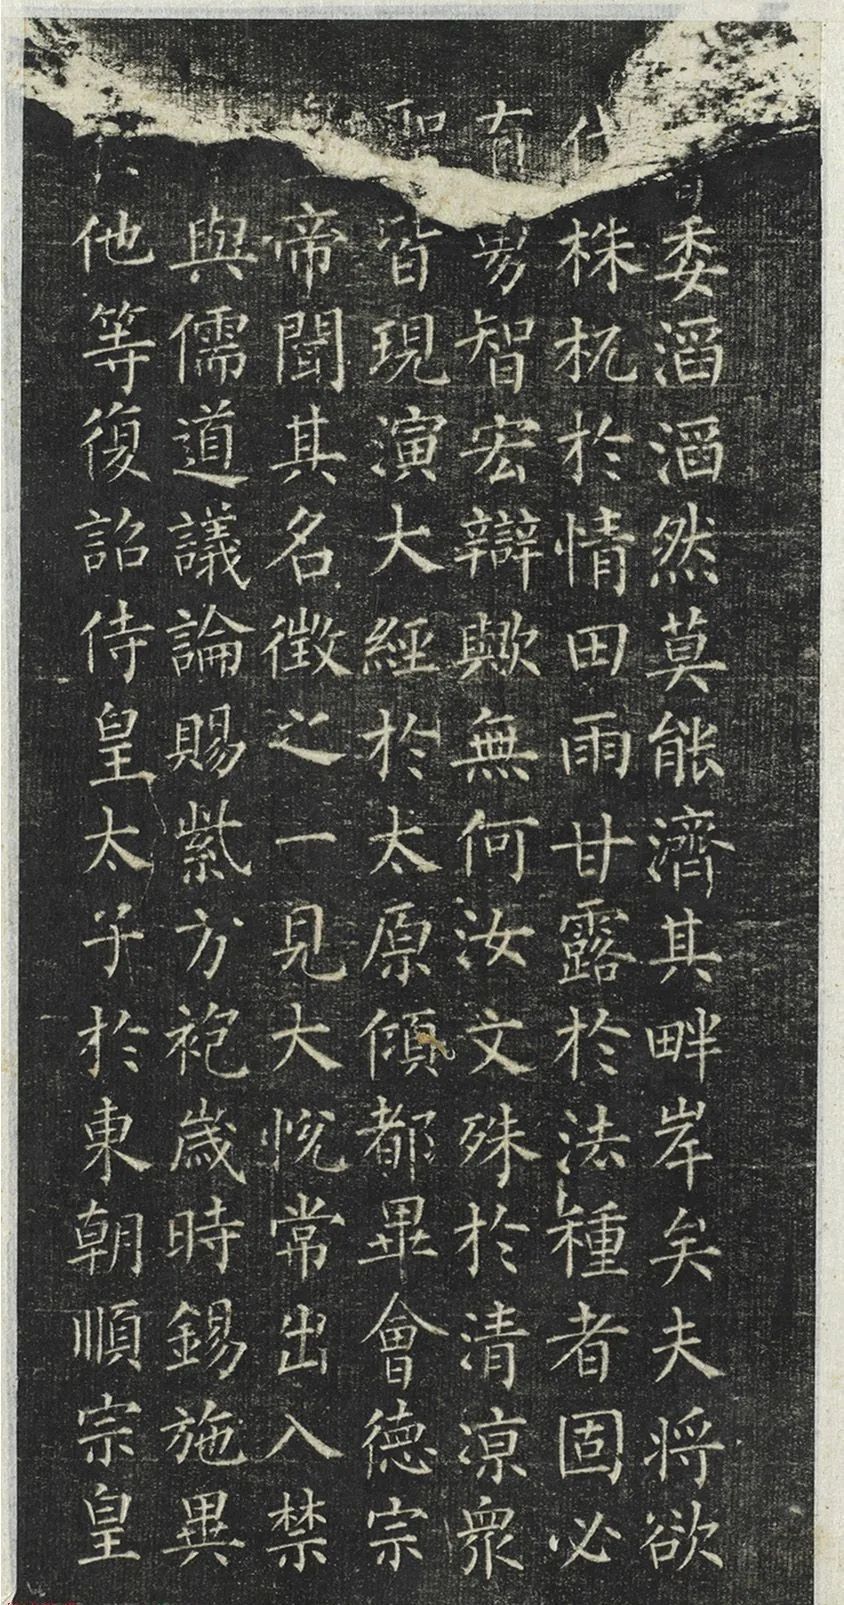 委滔滔然莫能濟其畔岸矣夫将欲
伐株杌於情田雨甘露於法種者固必
有勇智宏辯歟無何汝文殊於清涼衆
皆現演大經於太原傾都畢會德宗
帝聞其名徵之一見大悅常出入禁
與儒道議論賜紫方袍歲時錫施異
他等復詔侍皇太子於東朝順宗皇